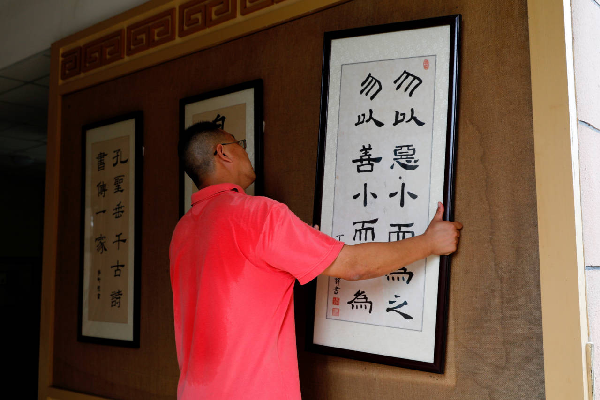 勿以惡小而為之
勿以善小而為
孔聖垂千古詩
書傳一家